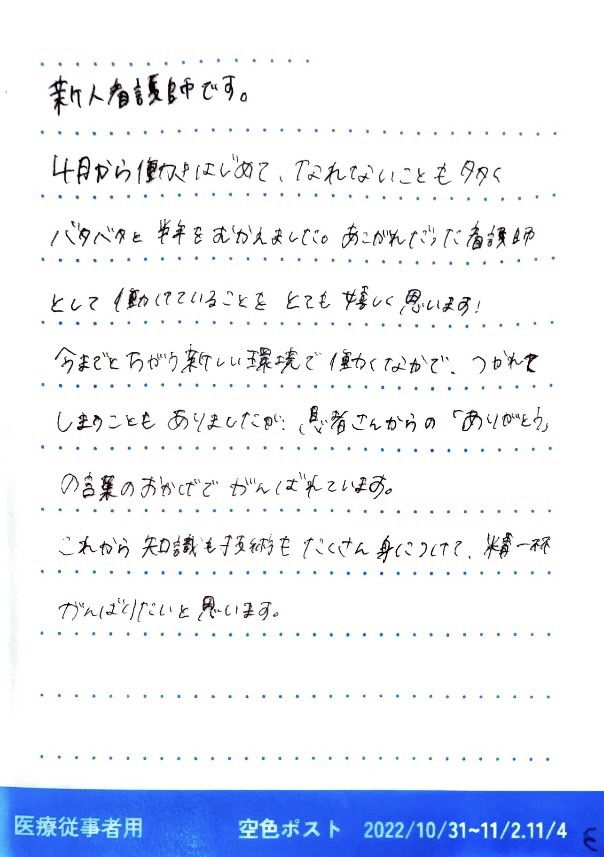 新人看護師です。
4月から働きはじめて、なれてないことも多く
バタバタと半年をむかえました。あこがれだった看護師
として働けていることをとても嬉しく思います!
今までとちがう新しい環境で働くなかで、つかれて
しまうこともありましたが、患者さんからの「ありがとう」
の言葉のおかげでがんばれています。
これから知識も技術もたくさん身につけて、精一杯
がんばりたいと思います。
医療従事者用 空色ポスト 2022/10/31~11/2.11/4